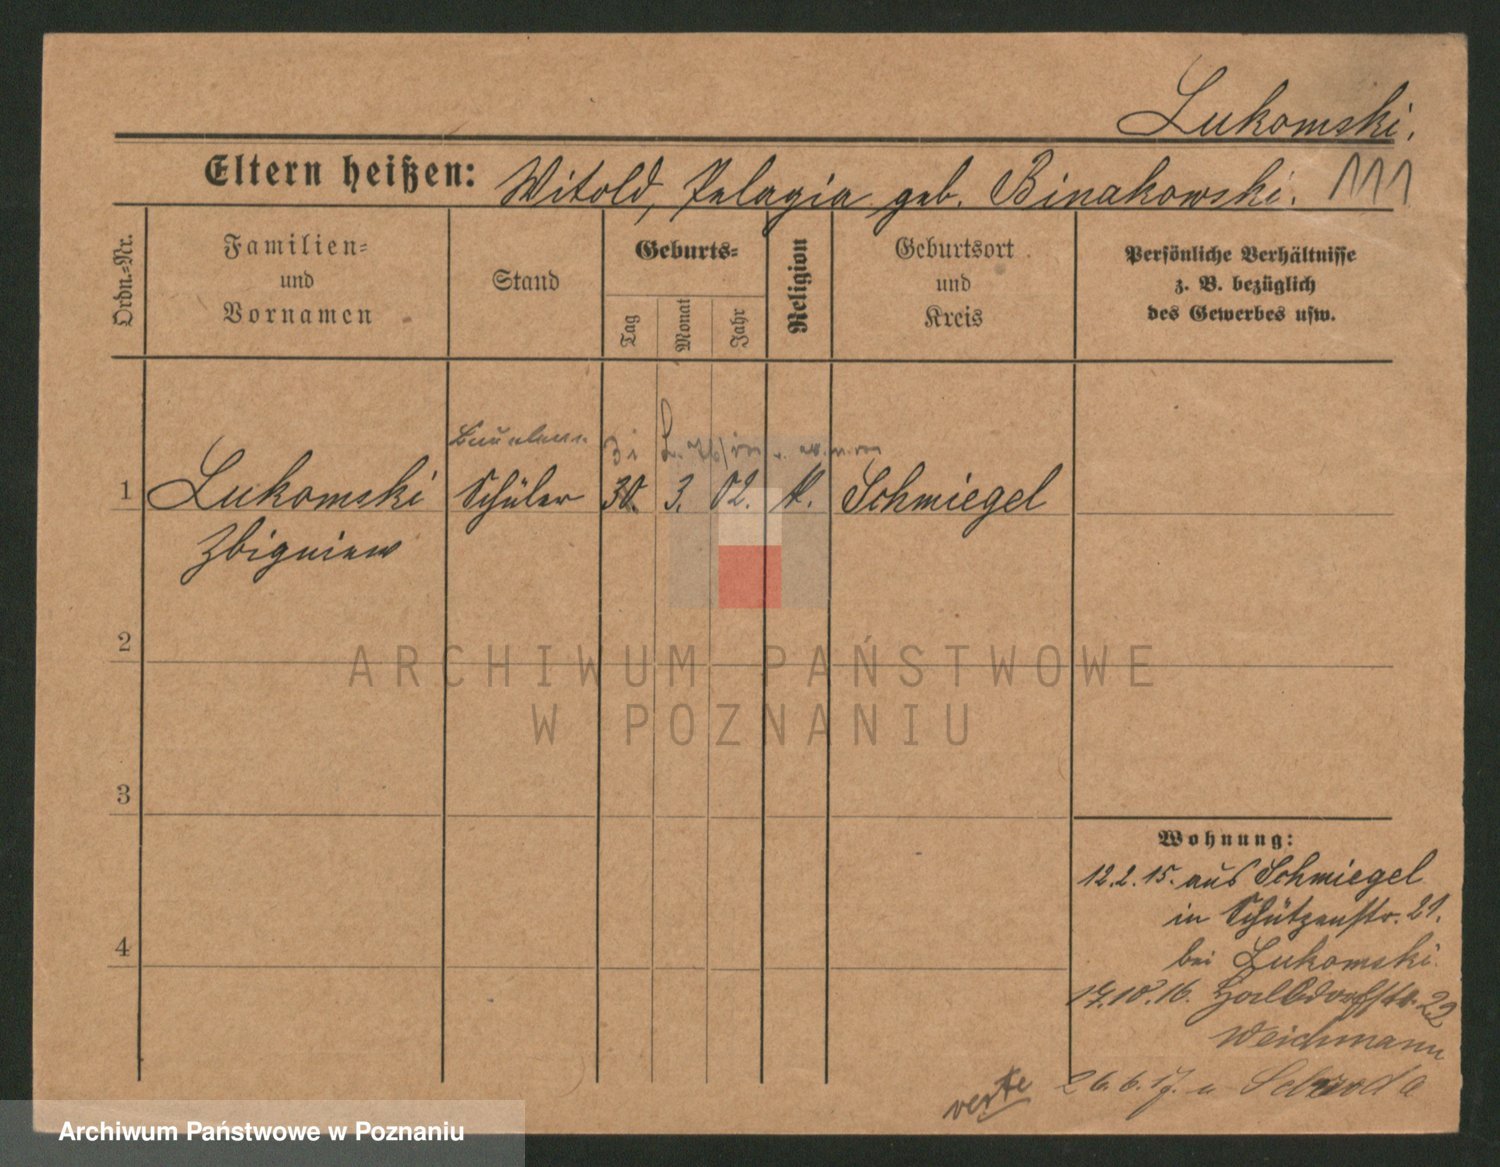 Lukomski.
Eltern heißen: Witold, Pelagia geb. Binakowski.
111
Ordn.=Nr.
Familien=
und
Vornamen
Stand
Geburts=
Tag
Monat
Jahr
Religion
Geburtsort
und
Kreis
Persönliche Verhältnisse
z. B. bezüglich
des Gewerbes usw.
1 Lukomski Schüler 30. 3. 02. k. Schmiegel
Zbigniew
2
3
4
ARCHIWUM PAŃSTWOWE
W POZNANIU
Wohnung:
12.2.15. aus Schmiegel
in Schützenstr. 21.
bei Lukomski.
17.10.16. Halbdorfstr. 22
Weichmann
26.6.17. n
verte
Archiwum Państwowe w Poznaniu